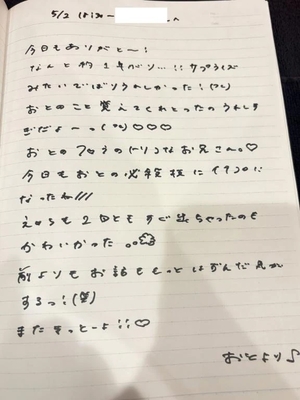 5/2 はる〜 へ
今日もありがと〜!
なんと約1年ぶり…!! サプライズ
みたいでばりうれしかった!
おとのこと覚えてくれとったのうれしす
ぎだよ〜っ ♡♡♡
おとの なお兄さん。♡
今日もおとの必殺技にイチコロに
なったね///
2回ともすぐ出ちゃったのも
かわいかった 。。
前よりもお話ももっとはずんだ気が
するっ!(笑)
またきっとーよ!!♡
おとより♪